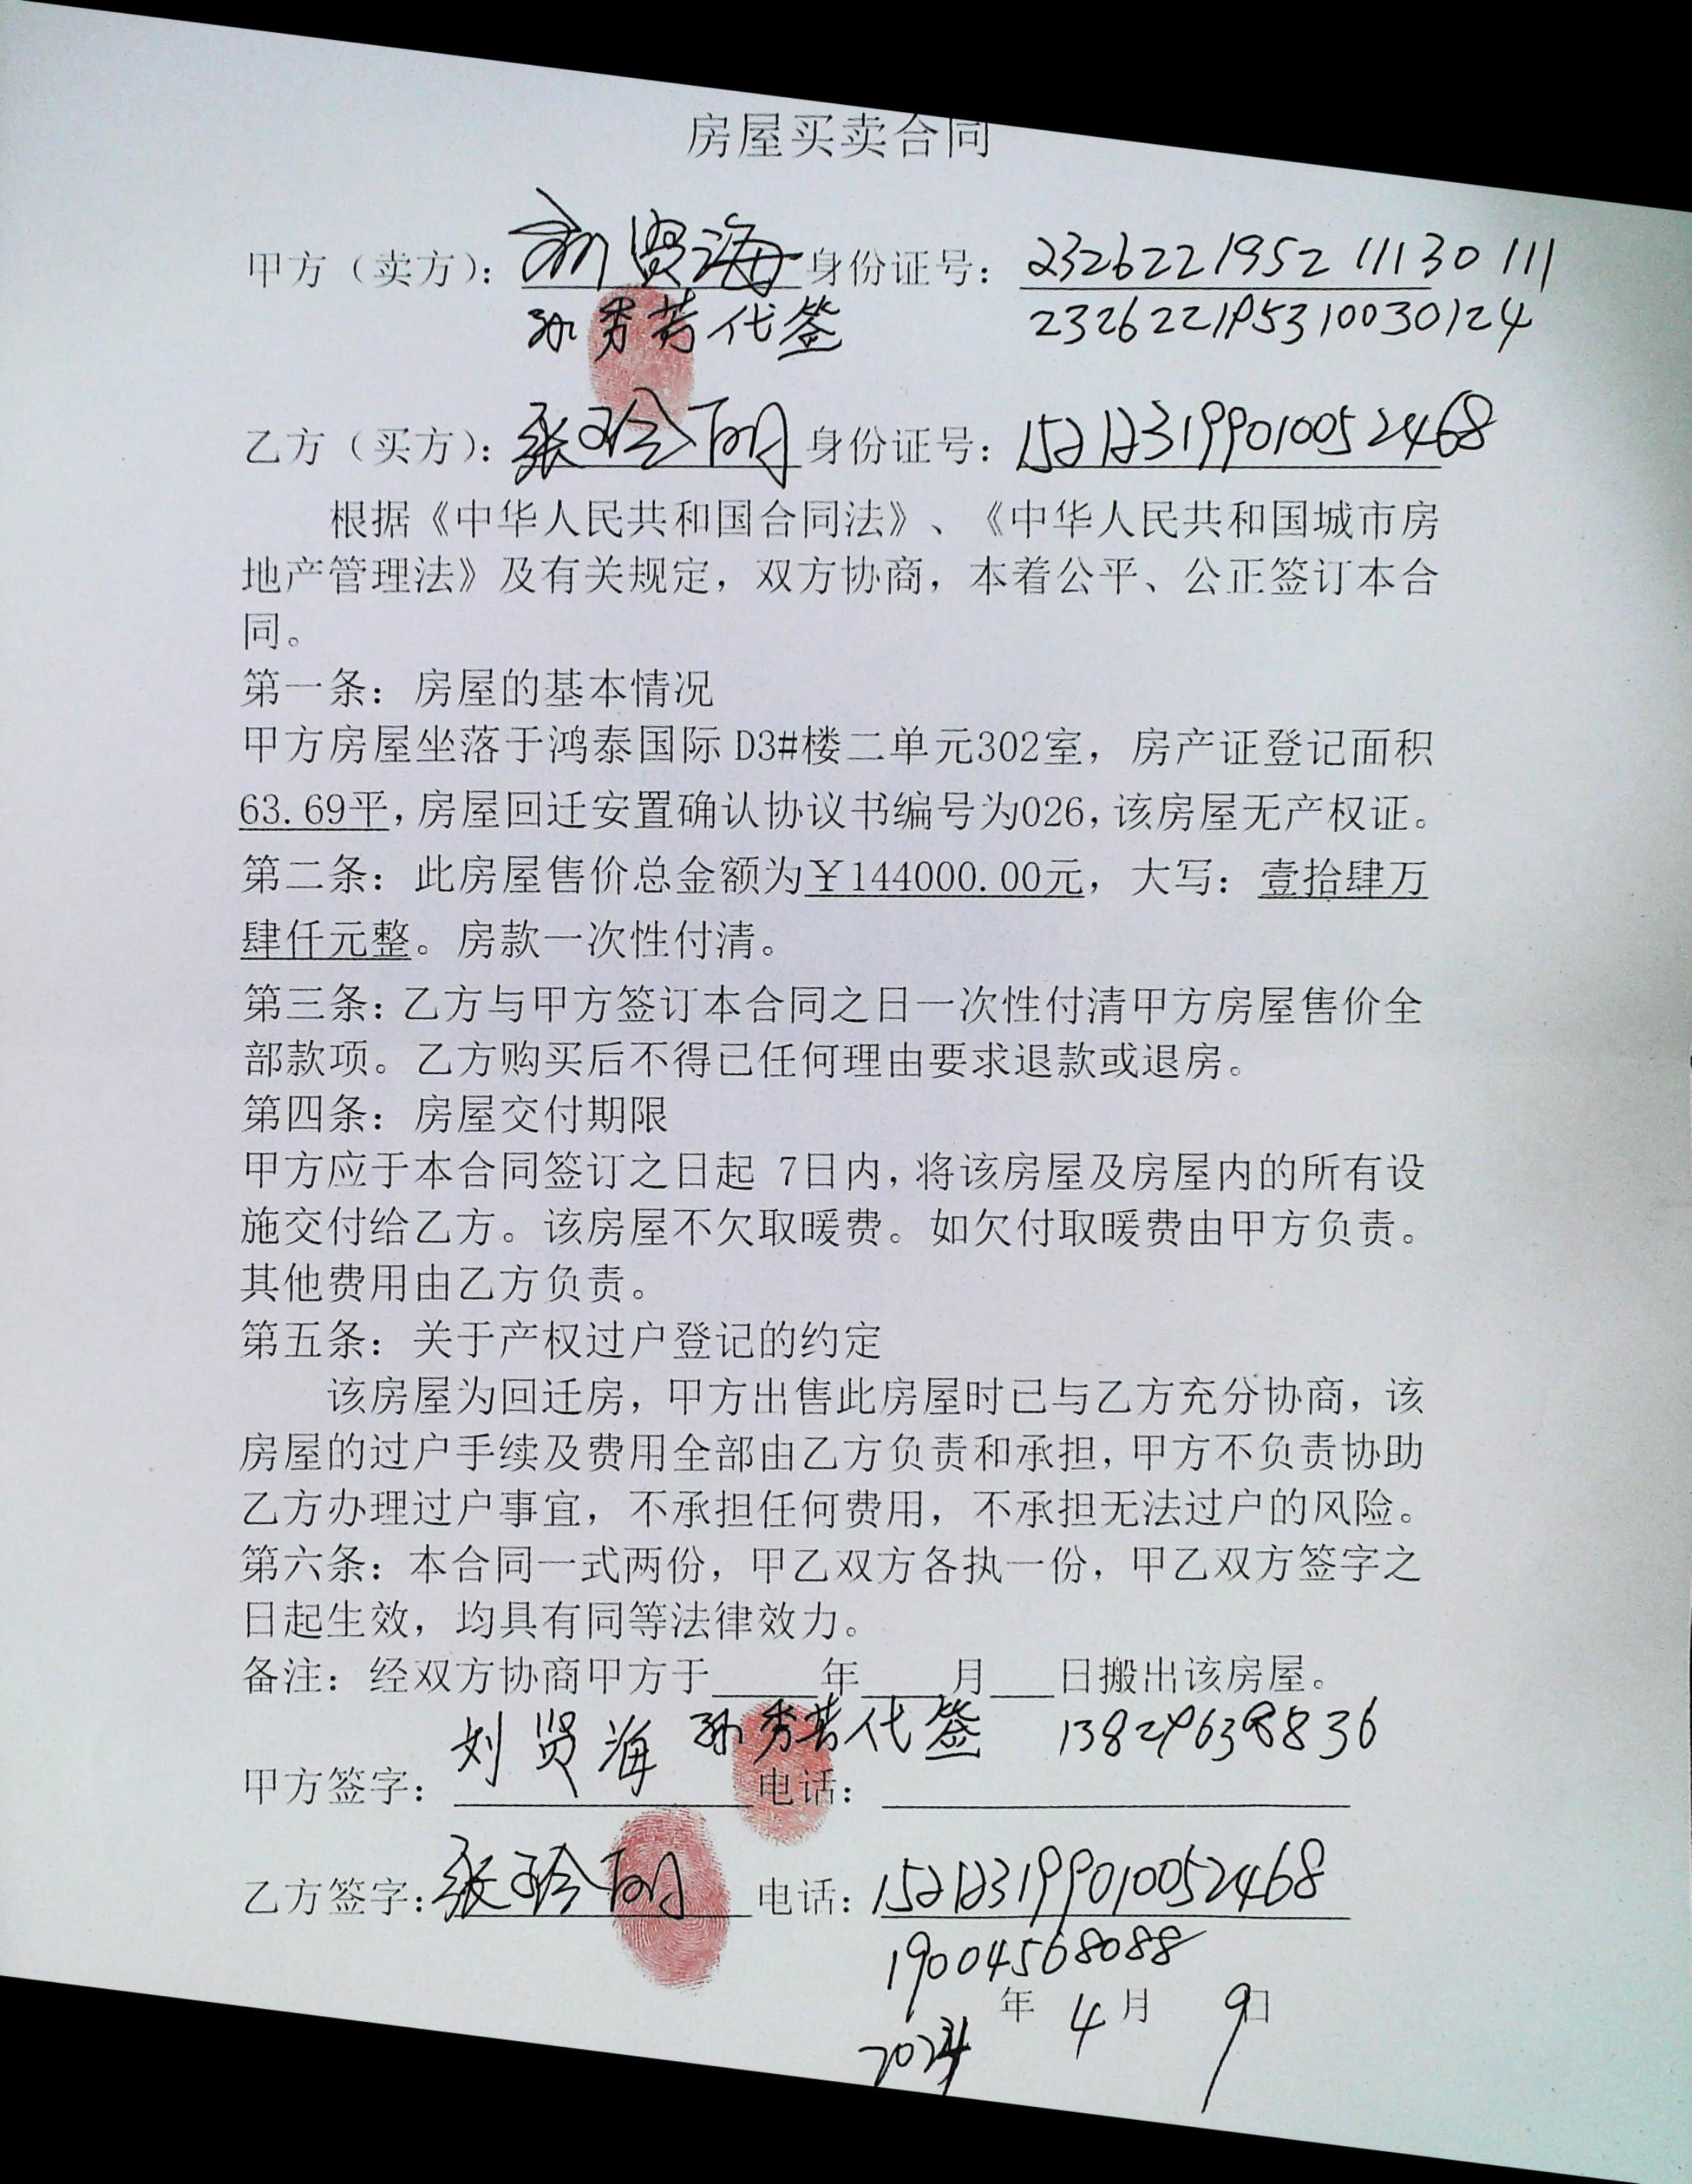 房屋买卖合同
甲方（卖方）：刘贤海 身份证号：232622195211130111
孙秀芳代签 232622195310030124
乙方（买方）：张玲丽 身份证号：152123199010052468
根据《中华人民共和国合同法》、《中华人民共和国城市房
地产管理法》及有关规定，双方协商，本着公平、公正签订本合
同。
第一条：房屋的基本情况
甲方房屋坐落于鸿泰国际 D3#楼二单元302室，房产证登记面积
63.69平，房屋回迁安置确认协议书编号为026，该房屋无产权证。
第二条：此房屋售价总金额为￥144000.00元，大写：壹拾肆万
肆仟元整。房款一次性付清。
第三条：乙方与甲方签订本合同之日一次性付清甲方房屋售价全
部款项。乙方购买后不得已任何理由要求退款或退房。
第四条：房屋交付期限
甲方应于本合同签订之日起 7日内，将该房屋及房屋内的所有设
施交付给乙方。该房屋不欠取暖费。如欠付取暖费由甲方负责。
其他费用由乙方负责。
第五条：关于产权过户登记的约定
该房屋为回迁房，甲方出售此房屋时已与乙方充分协商，该
房屋的过户手续及费用全部由乙方负责和承担，甲方不负责协助
乙方办理过户事宜，不承担任何费用，不承担无法过户的风险。
第六条：本合同一式两份，甲乙双方各执一份，甲乙双方签字之
日起生效，均具有同等法律效力。
备注：经双方协商甲方于_____年____月___日搬出该房屋。
刘贤海 孙秀芳代签
甲方签字： 电话：
乙方签字：张玲丽 电话：152123199010052468
19004568088
年 4 月 9日